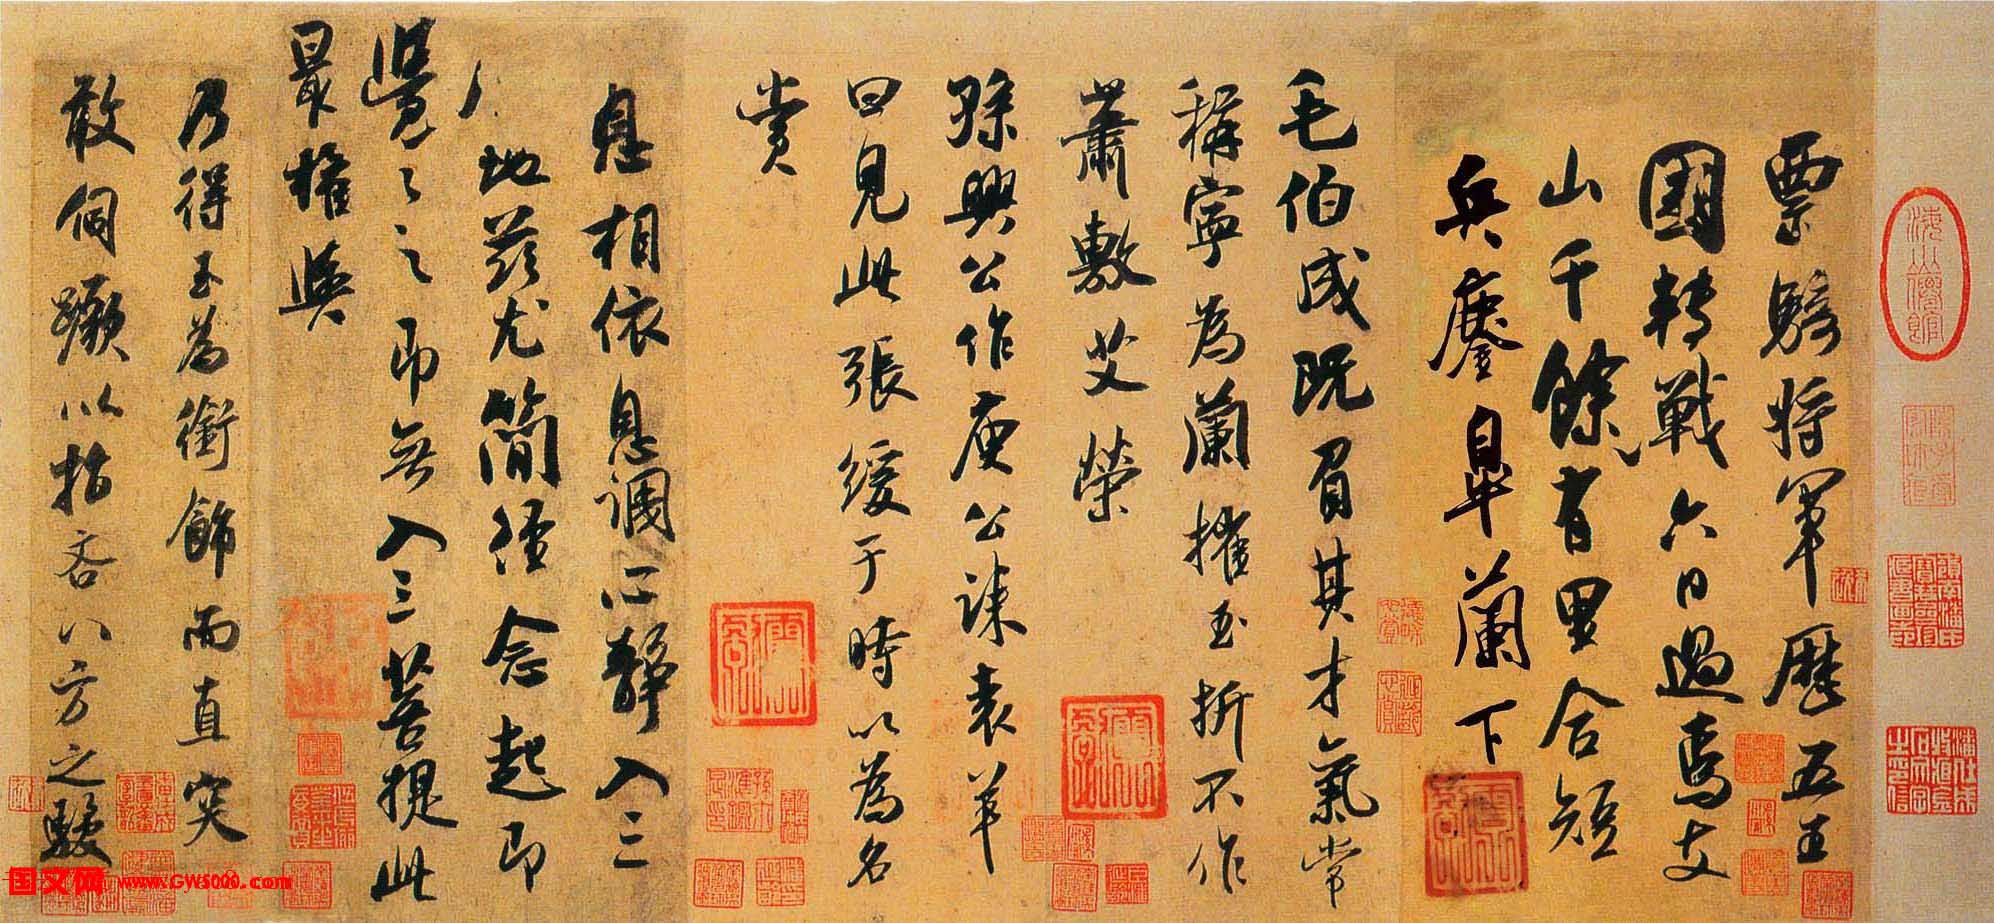 票騎将軍歷五王
國轉戰六日過焉支
山千餘有里合短
兵鏖皐蘭下
毛伯成既負其才氣常
稱寧為蘭摧玉折不作
蕭敷艾榮
孫興公作庾公誄袁羊
曰見此張緩于時以為名
賞
息相依息調心靜入三
地茲尤簡徑念起即
覺覺之即無入三菩提此
最權輿
乃得玉為銜飾而直突
敢伺蹶以指吝八方之駿
国文网 www.GW5000.com